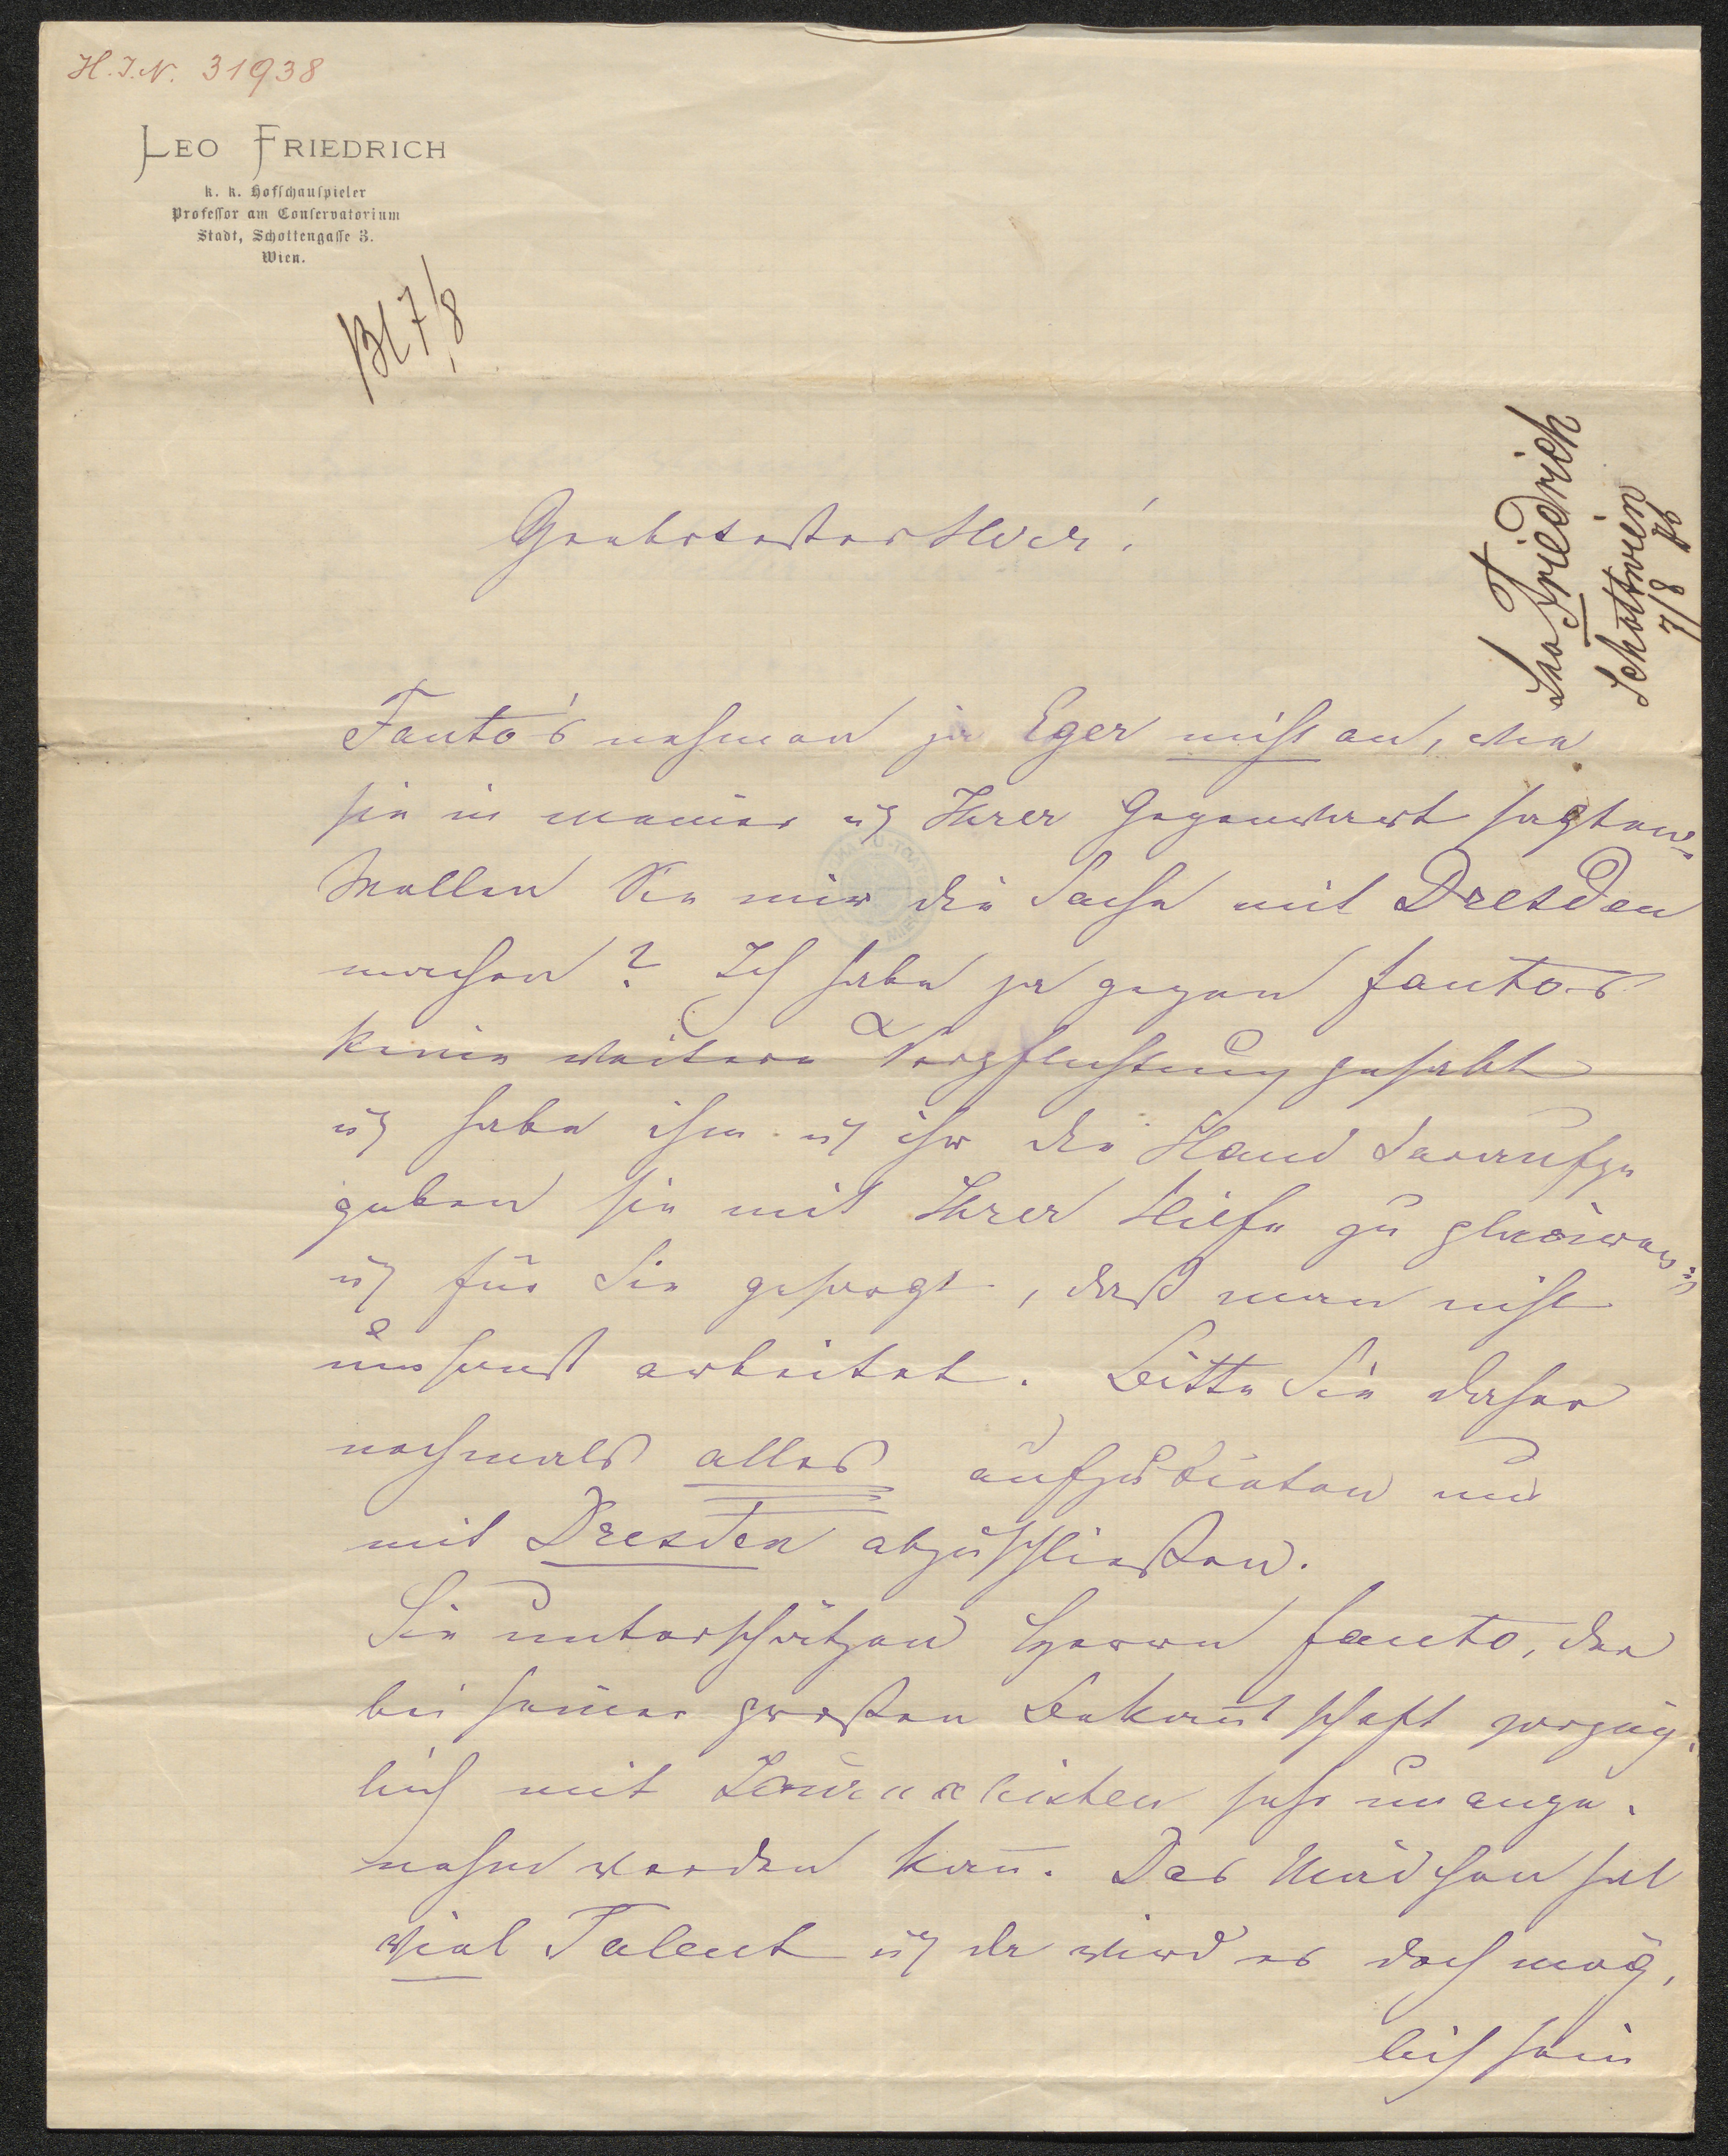 H.I.N. 31938
LEO FRIEDRICH
k. k. Hofschauspieler
Professor am Conservatorium
Stadt, Schottengasse 3.
Wien.
Bl 7/8
Leo Friedrich
Schottwien
7/8 86
Geehrtester Herr!
Fanto's nehmen ja Eger nicht an, wie
sie in meiner u. Ihrer Gegenwart sagten.
Wollen Sie mir die Sache mit Dresden
machen? Ich habe ja gegen Fanto's
keine weitere Verpflichtung gehabt
u. habe ihm u. ihr die Hand daraufge
geben sie mit Ihrer Hilfe zu placiren
u. für Sie gesorgt, daß man nicht
umsonst arbeitet. Bitte Sie daher
nochmals alles aufzubieten und
mit Dresden abzuschließen.
Sie unterschätzen Herrn Fanto, der
bei seiner großen Bekan̄tschaft vorzüg-
lich mit Journalisten sehr unange-
nehm werden kan̄. Das Mädchen hat
viel Talent u. da wird es doch mög-
lich sein